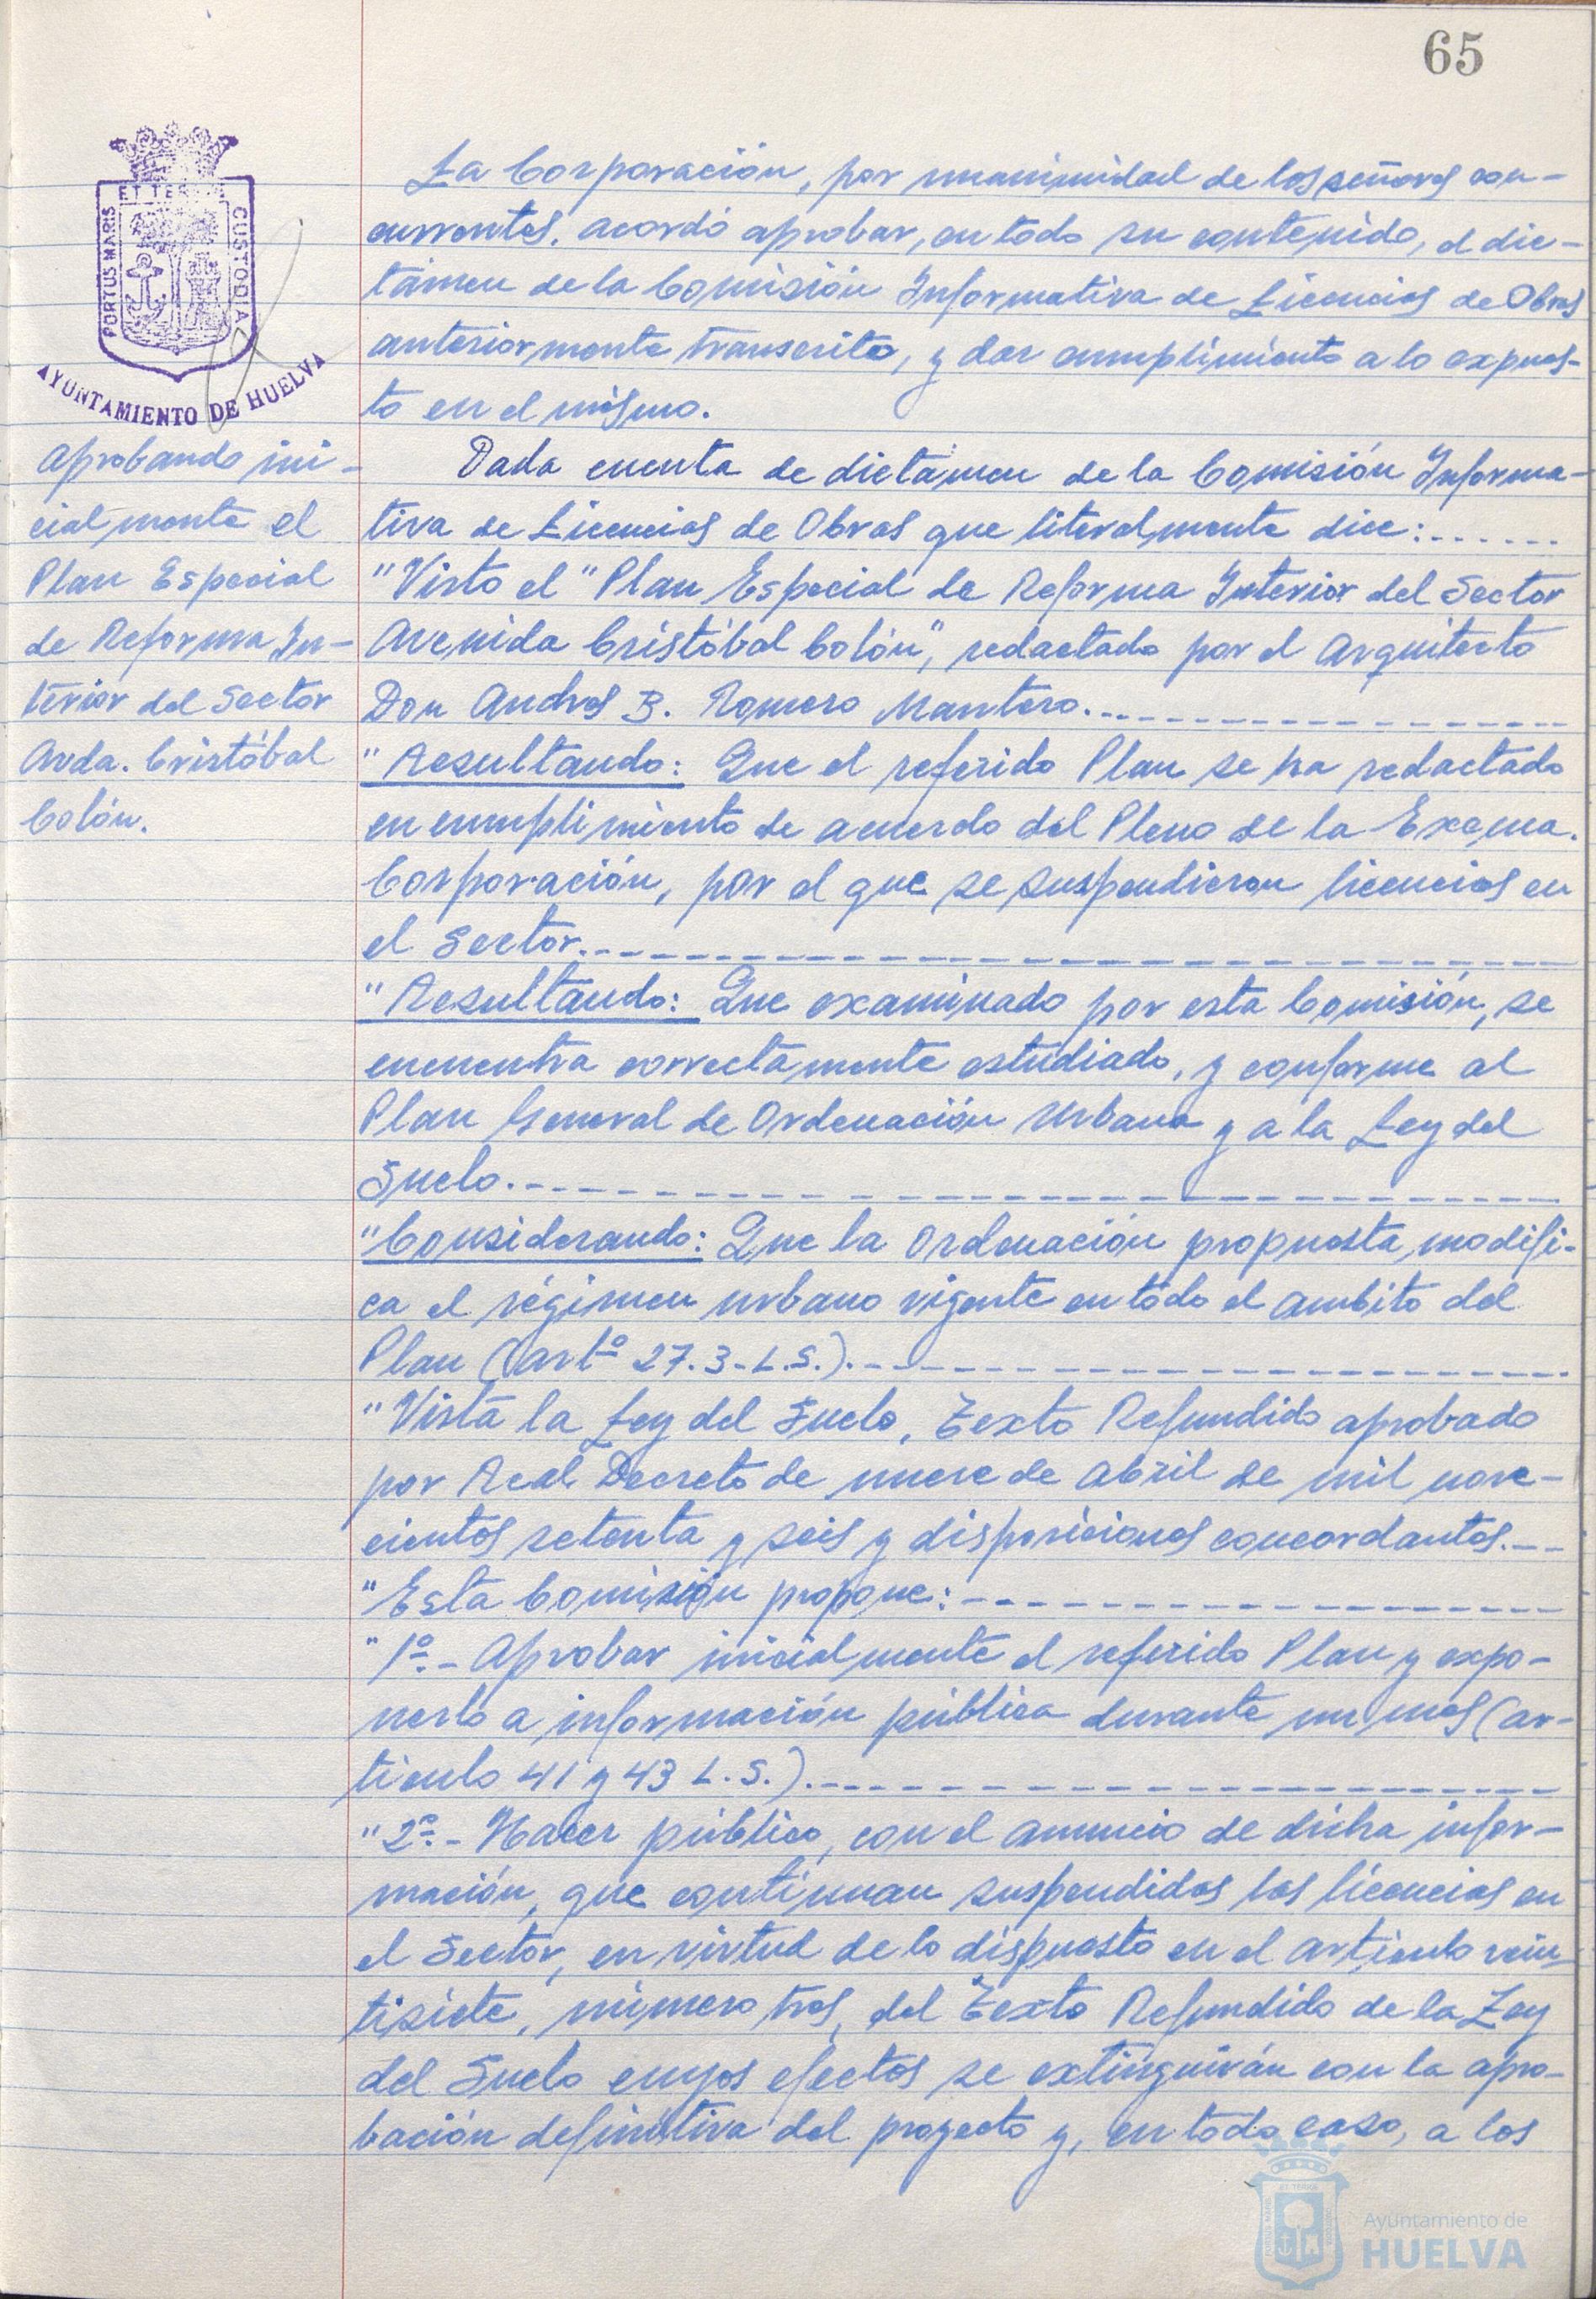 65
ET TERRÆ
PORTUS MARIS
CUSTODIA
AYUNTAMIENTO DE HUELVA
La Corporación, por unanimidad de los señores con-
currentes, acordó aprobar, en todo su contenido, el dic-
támen de la Comisión Informativa de Licencias de Obras
anteriormente transcrito, y dar cumplimiento a lo expues-
to en el mismo.
Aprobando ini-
cialmente el
Plan Especial
de Reforma In-
terior del Sector
Avda. Cristóbal
Colón.
Dada cuenta de dictámen de la Comisión Informa-
tiva de Licencias de Obras que literalmente dice:.......
"Visto el "Plan Especial de Reforma Interior del Sector
Avenida Cristóbal Colón", redactado por el Arquitecto
Don Andres B. Romero Mantero.
"Resultando: Que el referido Plan se ha redactado
en cumplimiento de acuerdo del Pleno de la Excma.
Corporación, por el que se suspendieron licencias en
el Sector.
"Resultando: Que examinado por esta Comisión, se
encuentra correctamente estudiado, y conforme al
Plan General de Ordenación Urbana y a la Ley del
Suelo.
"Considerando: Que la Ordenación propuesta, modifi-
ca el régimen urbano vigente en todo el ambito del
Plan (artº 27.3-L.S.).
"Vista la Ley del Suelo, Texto Refundido aprobado
por Real Decreto de nueve de Abril de mil nove-
cientos setenta y seis y disposiciones concordantes.
"Esta Comisión propone:
"1º.- Aprobar inicialmente el referido Plan y expo-
nerlo a información pública durante un mes (ar-
tículo 41 y 43 L.S.).
"2º.- Hacer público, con el anuncio de dicha infor-
mación, que continuan suspendidas las licencias en
el Sector, en virtud de lo dispuesto en el artículo vein-
tisiete, número tres, del Texto Refundido de la Ley
del Suelo cuyos efectos se extinguirán con la apro-
bación definitiva del proyecto y, en todo caso, a los
Ayuntamiento de
HUELVA